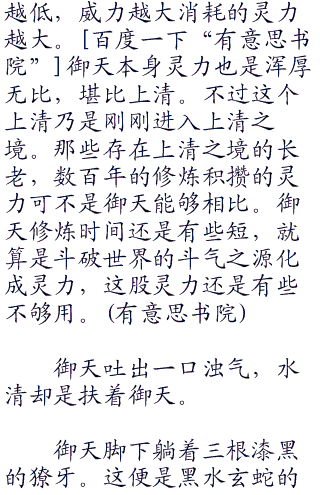 越低，威力越大消耗的灵力
越大。[百度一下“有意思书
院”]御天本身灵力也是浑厚
无比，堪比上清。不过这个
上清乃是刚刚进入上清之
境。那些存在上清之境的长
老，数百年的修炼积攒的灵
力可不是御天能够相比。御
天修炼时间还是有些短，就
算是斗破世界的斗气之源化
成灵力，这股灵力还是有些
不够用。(有意思书院)
御天吐出一口浊气，水
清却是扶着御天。
御天脚下躺着三根漆黑
的獠牙。这便是黑水玄蛇的